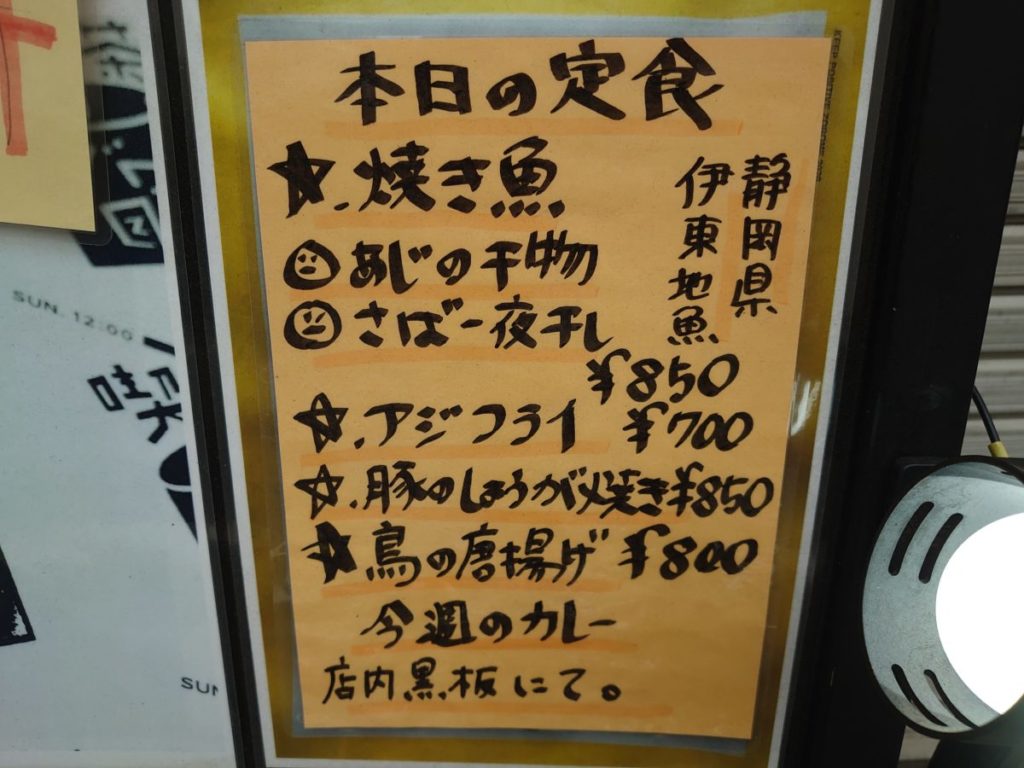 本日の定食
★.焼き魚
静岡県
伊東地魚
あじの干物
さば一夜干し
¥850
☆.アジフライ ¥700
☆.豚のしょうが焼き¥850
★鳥の唐揚げ ¥800
今週のカレー
店内黒板にて。
SUN. 12:00
喫
SUN